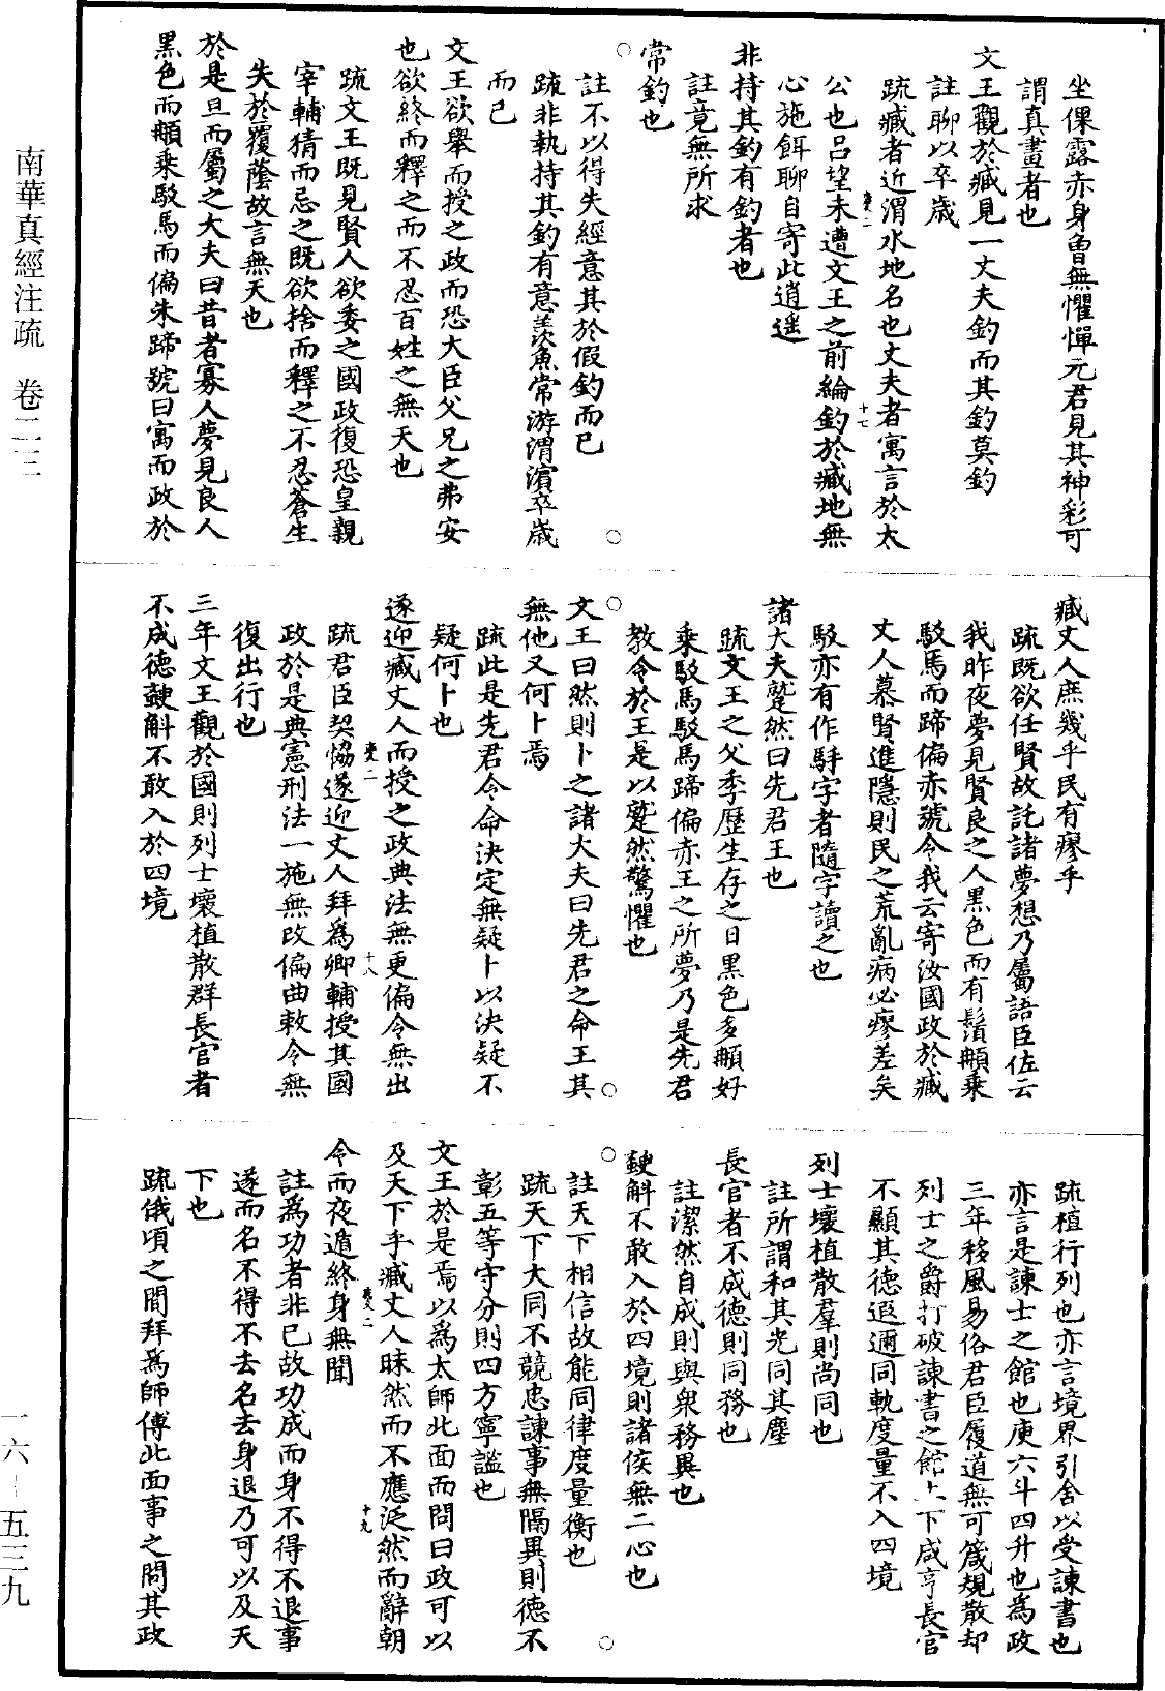 坐倮露赤身曾無懼憚元君見其神彩可
謂真畫者也
文王觀於臧見一丈夫釣而其釣莫釣
註聊以卒歲
疏臧者近渭水地名也丈夫者寓言於太
公也呂望未遭文王之前綸釣於臧地無
心施餌聊自寄此逍遥
非持其釣有釣者也
註竟無所求
常釣也
註不以得失經意其於假釣而已
疏非執持其釣有意羨魚常游渭濱卒歲
而已
文王欲舉而授之政而恐大臣父兄之弗安
也欲終而釋之而不忍百姓之無天也
疏文王既見賢人欲委之國政復恐皇親
宰輔猜而忌之既欲捨而釋之不忍蒼生
失於覆蔭故言無天也
於是旦而屬之大夫曰昔者寡人夢見良人
黑色而䫇乘駁馬而偏朱蹄號曰寓而政於
臧丈人庶幾乎民有瘳乎
疏既欲任賢故託諸夢想乃屬語臣佐云
我昨夜夢見賢良之人黑色而有鬚䫇乘
駁馬而蹄偏赤號令我云寄汝國政於臧
丈人慕賢進隱則民之荒亂病必瘳差矣
駁亦有作騂字者隨字讀之也
諸大夫蹵然曰先君王也
疏文王之父季歷生存之日黑色多䫇好
乘駁馬駁馬蹄偏赤王之所夢乃是先君
教令於王是以蹵然驚懼也
文王曰然則卜之諸大夫曰先君之命王其
無他又何卜焉
疏此是先君令命決定無疑卜以決疑不
疑何卜也
遂迎臧丈人而授之政典法無更偏令無出
疏君臣契恊遂迎丈人拜為卿輔授其國
政於是典憲刑法一施無改偏曲敕令無
復出行也
三年文王觀於國則列士壞植散群長官者
不成德䵂斛不敢入於四境
疏植行列也亦言境界引舍以受諫書也
亦言是諫士之館也庾六斗四升也為政
三年移風易俗君臣履道無可箴規散却
列士之爵打破諫書之館上下咸亨長官
不顯其德遐邇同軌度量不入四境
列士壞植散羣則尚同也
註所謂和其光同其塵
長官者不成德則同務也
註潔然自成則與衆務異也
䵂斛不敢入於四境則諸侯無二心也
註天下相信故能同律度量衡也
疏天下大同不競忠諫事無隔異則德不
彰五等守分則四方寧謐也
文王於是焉以為太師北面而問曰政可以
及天下乎臧丈人昧然而不應泛然而辭朝
令而夜遁終身無聞
註為功者非己故功成而身不得不退事
遂而名不得不去名去身退乃可以及天
下也
疏俄頃之間拜為師傅北面事之問其政
南華真經注疏　卷二三
一六—五三九
十七
十八
十九